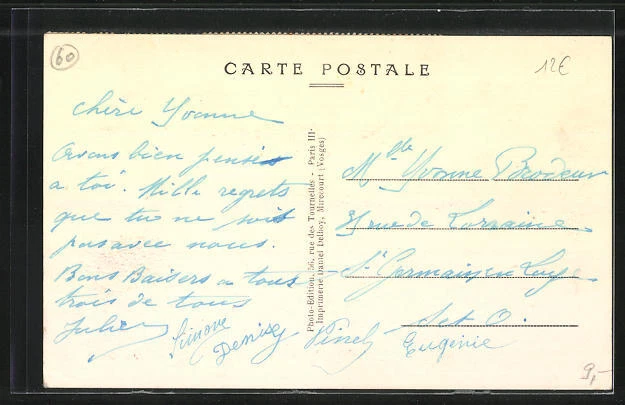 60
CARTE POSTALE
12€
Chère Yvonne
Avons bien pensés
a toi. Mille regrets
que tu ne soit
pas avec nous.
Bons Baisers a tous
trois de tous
Julien
Simone
Denise
Pinel
Eugénie
Photo-Edition, 56, rue des Tournelles - Paris III·
Imprimerie Daniel Delboy, Mirecourt (Vosges)
Mlle Yvonne Brodeur
rue de Lorraine
St Germain en Laye
Set O.
9,-